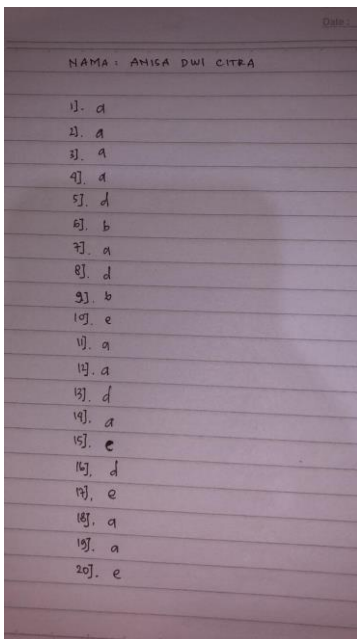 Date :
NAMA : ANISA DWI CITRA
1]. a
2]. a
3]. a
4]. a
5]. d
6]. b
7]. a
8]. d
9]. b
10]. e
11]. a
12]. a
13]. d
14]. a
15]. e
16]. d
17]. e
18]. a
19]. a
20]. e